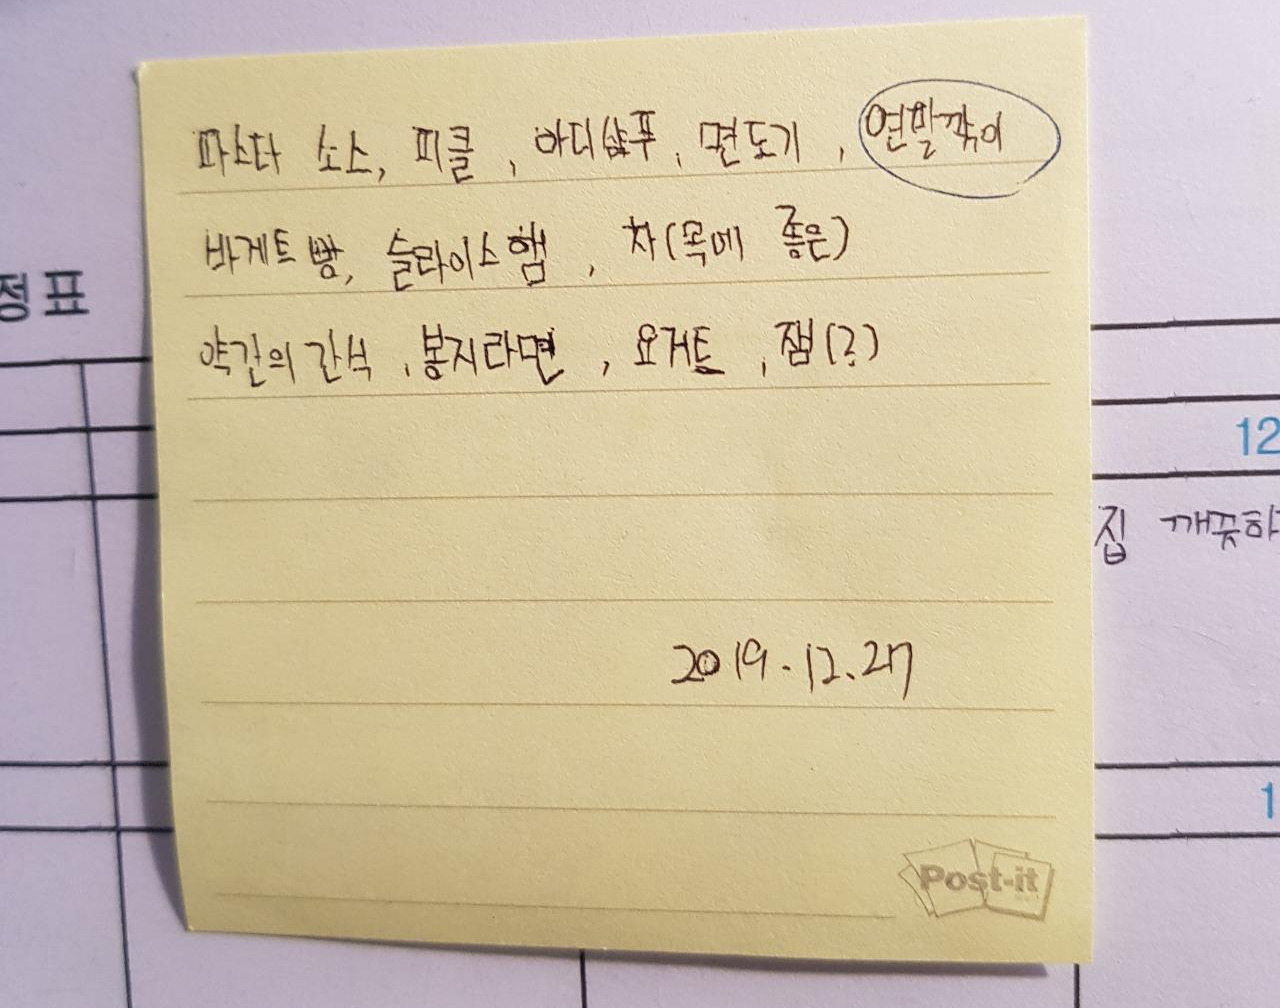 파스타 소스, 피클, 바디샴푸, 면도기, 연필깎이
바게트 빵, 슬라이스햄, 차(목에 좋은)
약간의 간식, 봉지라면, 요거트, 잼(?)
2019.12.27
Post-it
정표
12
집 깨끗하
1